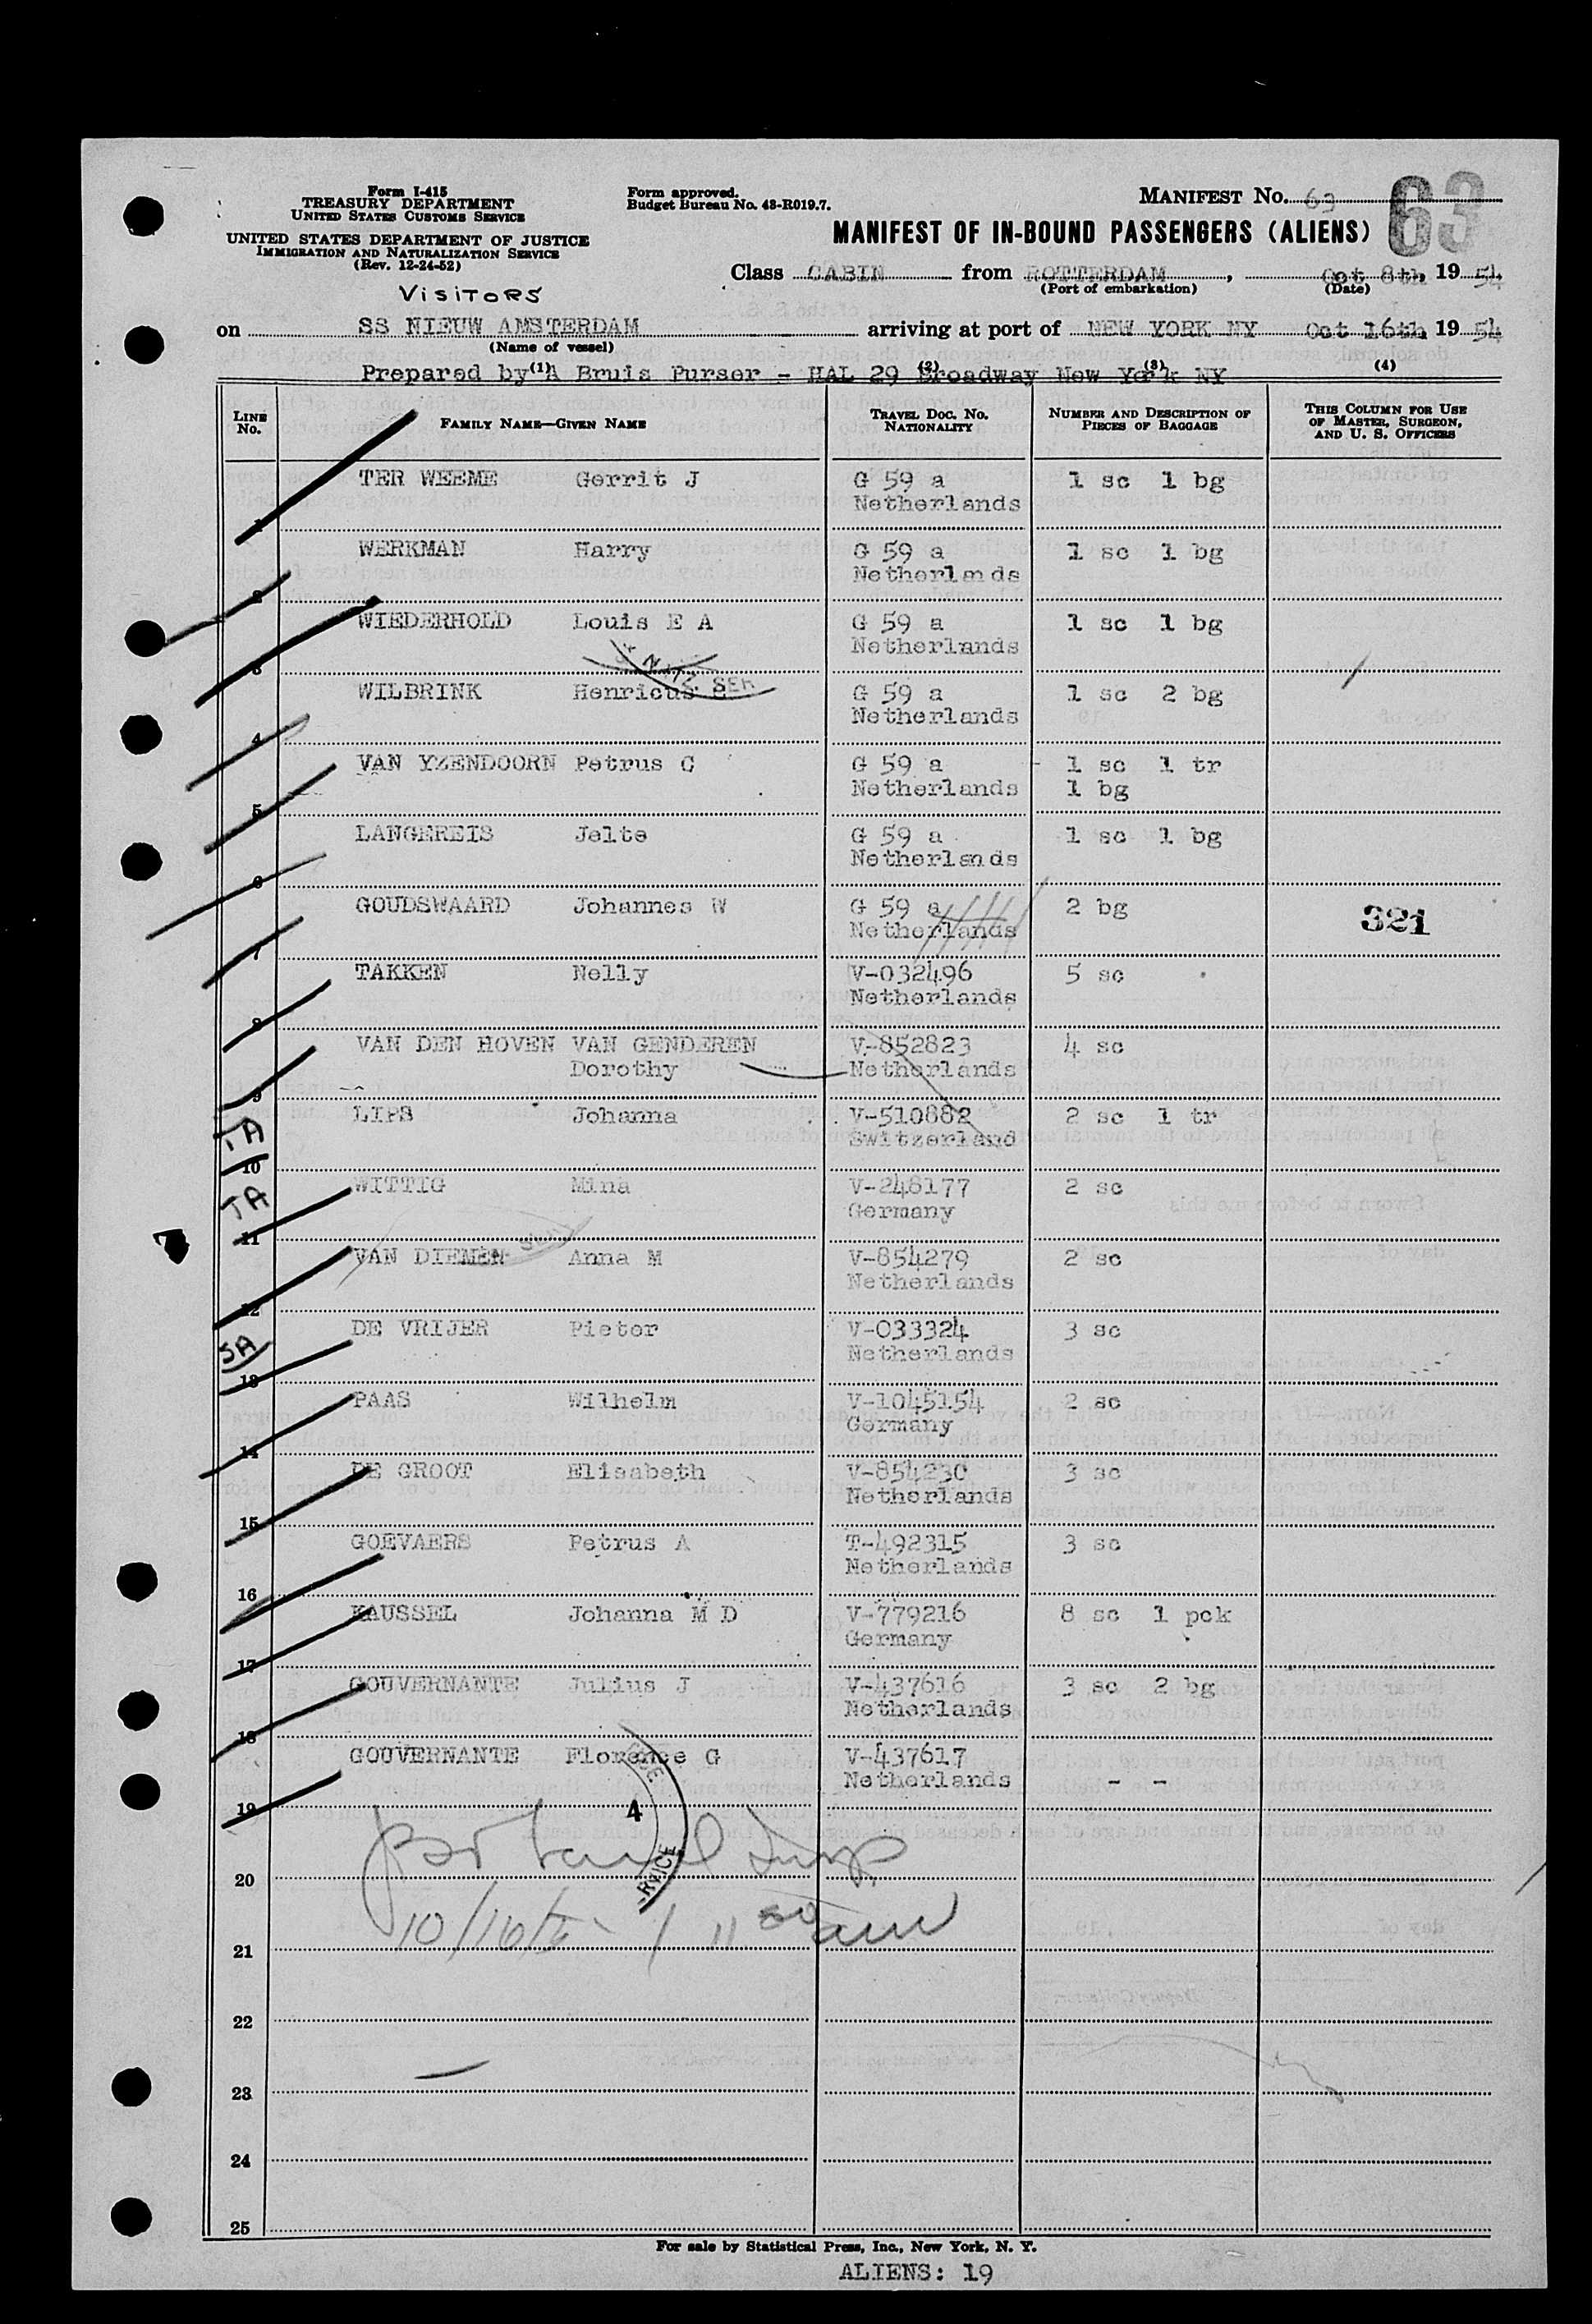 Form I-415
TREASURY DEPARTMENT
UNITED STATES CUSTOMS SERVICE
UNITED STATES DEPARTMENT OF JUSTICE
IMMIGRATION AND NATURALIZATION SERVICE
(Rev. 12-24-52)
VISITORS
Form approved.
Budget Bureau No. 43-R019.7.
MANIFEST No. 63
63
MANIFEST OF IN-BOUND PASSENGERS (ALIENS)
Class CABIN from ROTTERDAM, Oct 8th, 19 54
(Port of embarkation) (Date)
on SS NIEUW AMSTERDAM arriving at port of NEW YORK NY Oct 16th, 19 54
(Name of vessel)
Prepared by A Bruis Purser - HAL 29 Broadway New York NY
(1) (2) (3) (4)
LINE No. FAMILY NAME—GIVEN NAME TRAVEL DOC. No. NATIONALITY NUMBER AND DESCRIPTION OF PIECES OF BAGGAGE THIS COLUMN FOR USE OF MASTER, SURGEON, AND U. S. OFFICERS
TER WEEME Gerrit J G 59 a 1 sc 1 bg
1 Netherlands
WERKMAN Harry G 59 a 1 sc 1 bg
2 Netherlands
WIEDERHOLD Louis E A G 59 a 1 sc 1 bg
3 Netherlands
WILBRINK Henricus G 59 a 1 sc 2 bg
4 Netherlands
VAN YZENDOORN Petrus C G 59 a 1 sc 1 tr
5 Netherlands 1 bg
LANGEREIS Jelte G 59 a 1 sc 1 bg
6 Netherlands
GOUDSWAARD Johannes W G 59 a 2 bg 321
7 Netherlands
TAKKEN Nelly V-032496 5 sc
8 Netherlands
VAN DEN HOVEN VAN GENDEREN V-852823 4 sc
9 Dorothy Netherlands
LIPS Johanna V-510882 2 sc 1 tr
10 Switzerland
WITTIG Mina V-248177 2 sc
11 Germany
VAN DIEMEN Anna M V-854279 2 sc
12 Netherlands
DE VRIJER Pieter V-033324 3 sc
SA
13 Netherlands
PAAS Wilhelm V-1045154 2 sc
14 Germany
DE GROOT Elisabeth V-854230 3 sc
15 Netherlands
GOEVAERS Petrus A T-492315 3 sc
16 Netherlands
KAUSSEL Johanna M D V-779216 8 sc 1 pck
17 Germany
GOUVERNANTE Julius J V-437616 3 sc 2 bg
18 Netherlands
GOUVERNANTE Florence G V-437617
19 Netherlands - -
4
20
21
22
23
24
25
For sale by Statistical Press, Inc., New York, N. Y.
ALIENS: 19